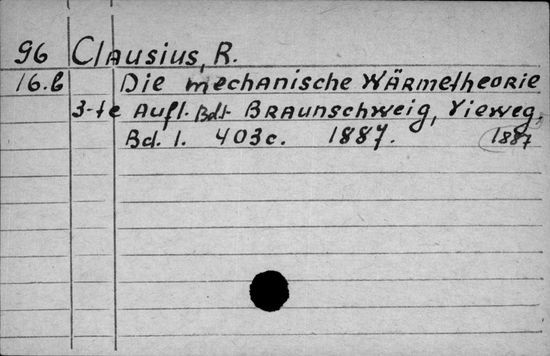 96 Clausius, R.
16.b Die mechanische Wärmetheorie
3-te Aufl. Bd1- Braunschweig, Vieweg,
Bd. 1. 403c. 1887. 1887